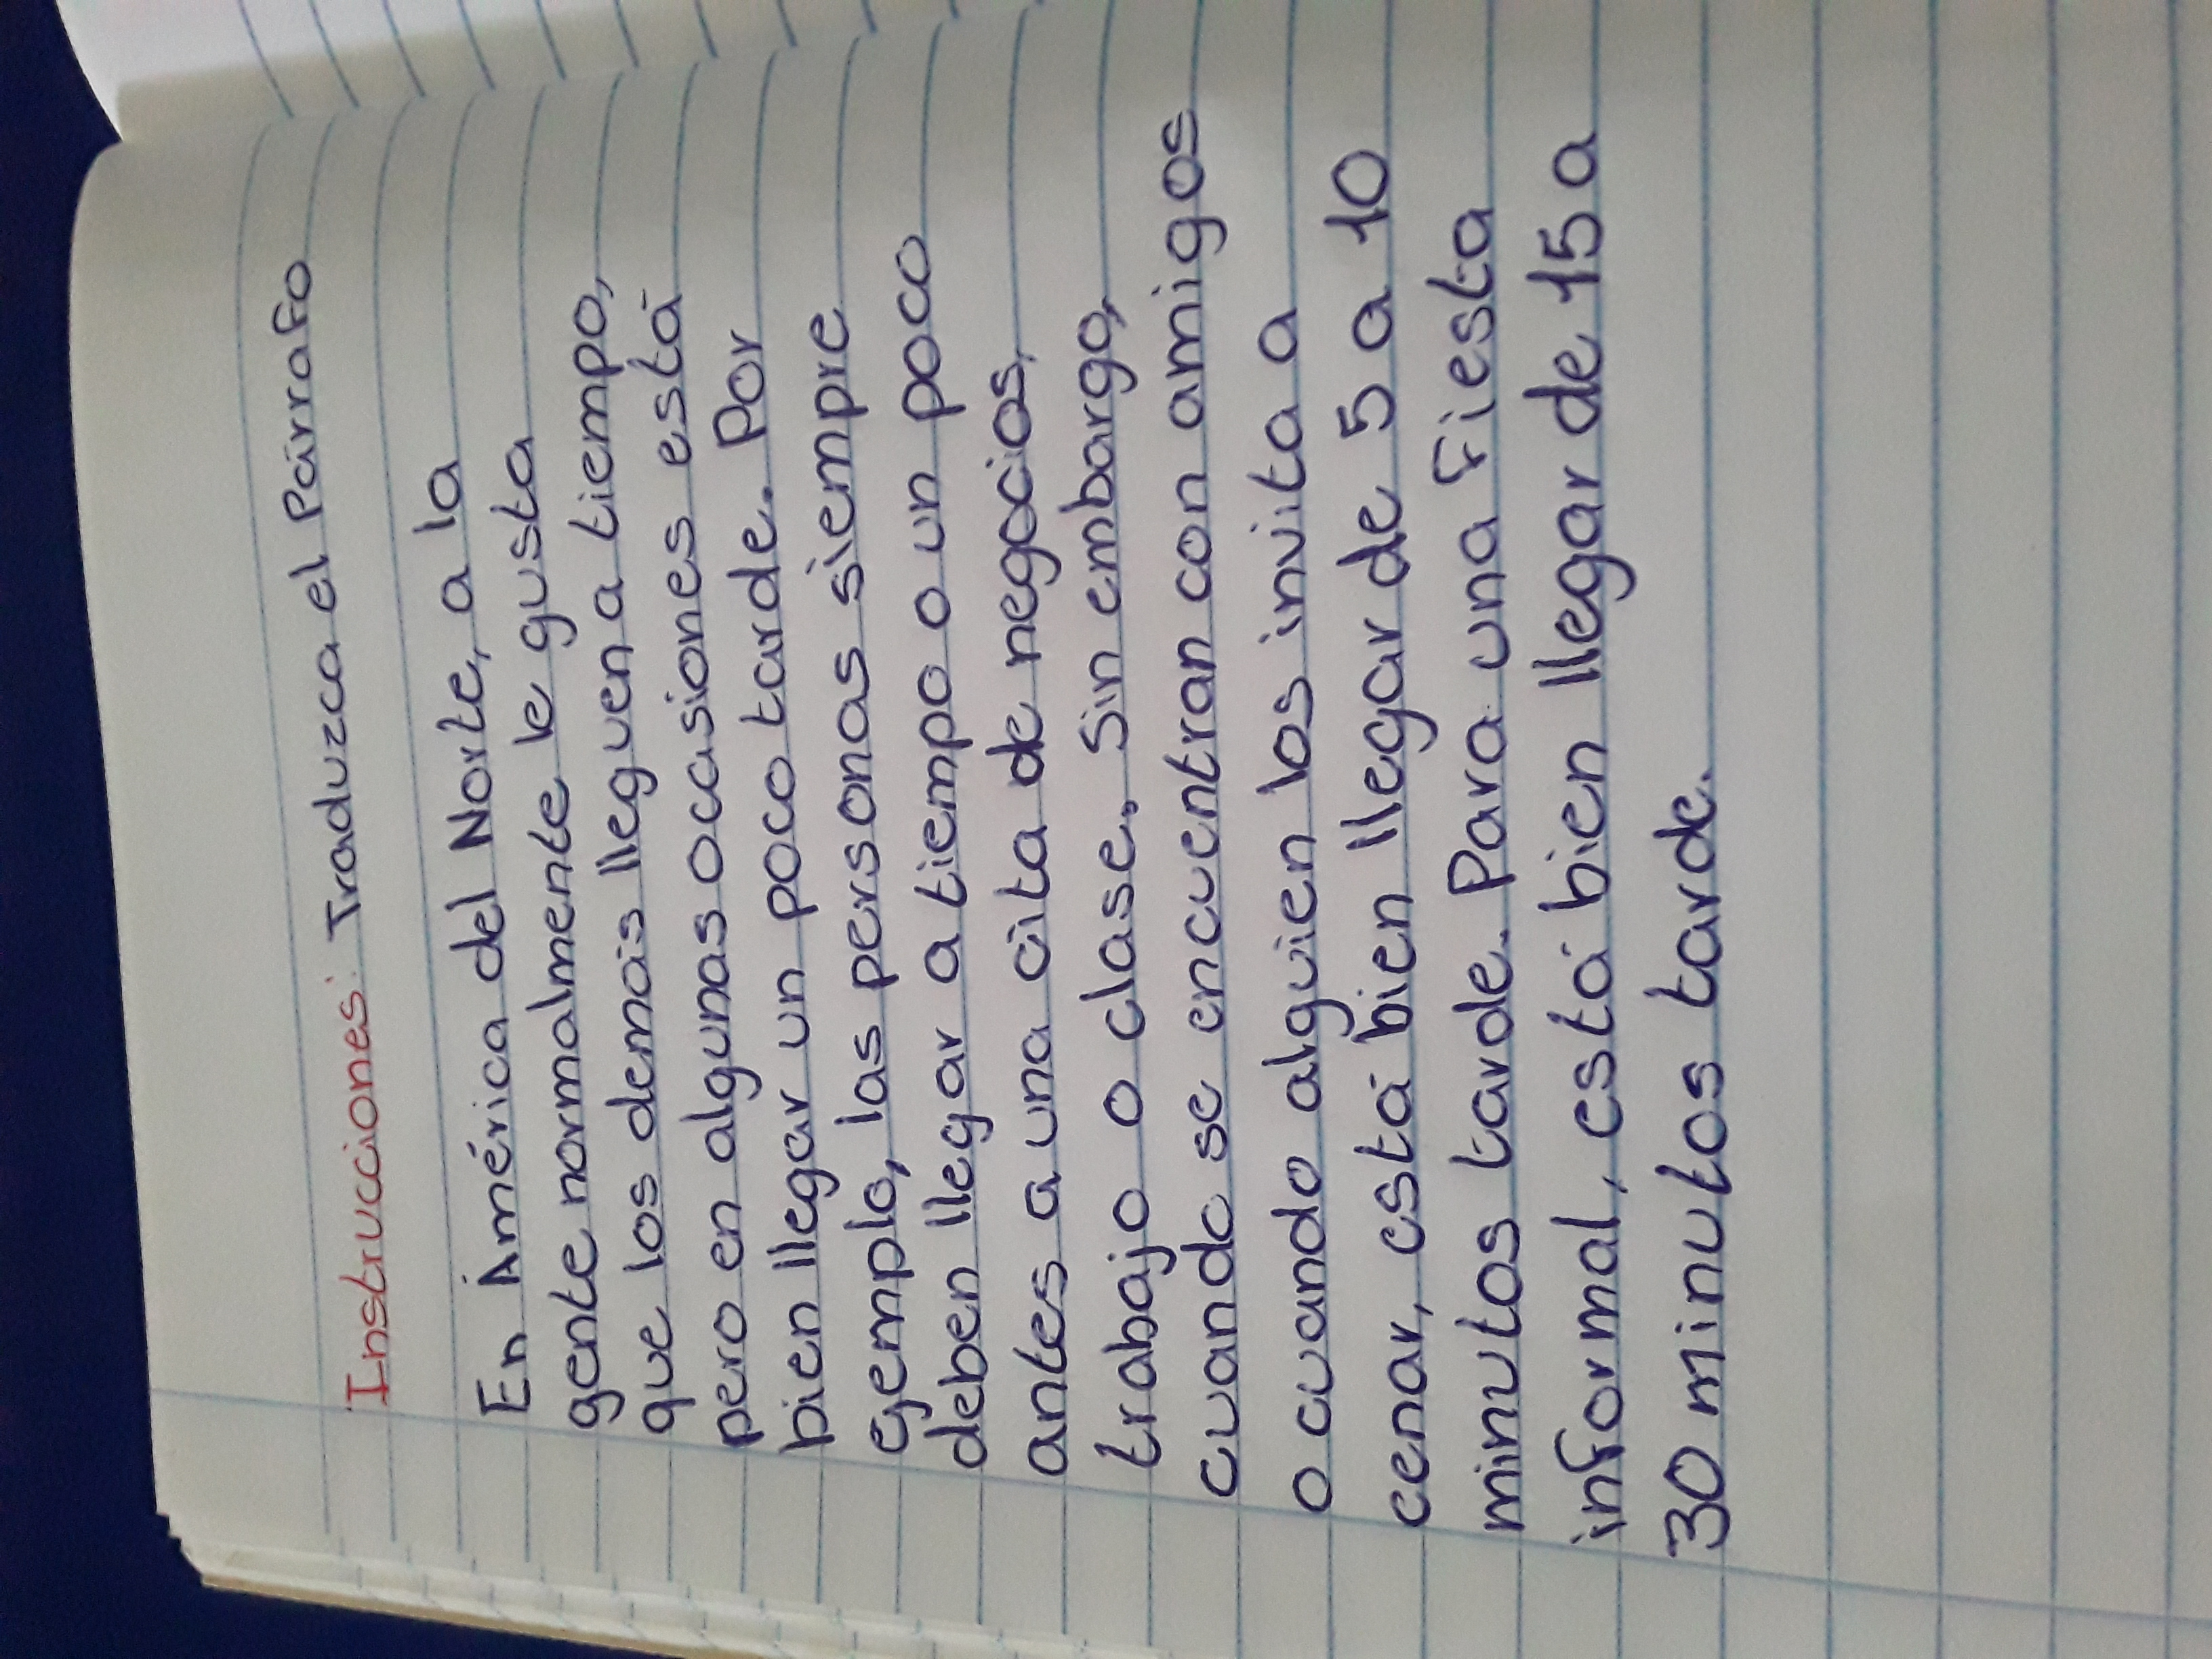 Instrucciones: Traduzca el Párrafo
En América del Norte, a la
gente normalmente le gusta
que los demás lleguen a tiempo,
pero en algunas ocasiones está
bien llegar un poco tarde. Por
ejemplo, las personas siempre
deben llegar a tiempo o un poco
antes a una cita de negocios,
trabajo o clase. Sin embargo,
cuando se encuentran con amigos
o cuando alguien los invita a
cenar, está bien llegar de 5 a 10
minutos tarde. Para una fiesta
informal, está bien llegar de 15 a
30 minutos tarde.